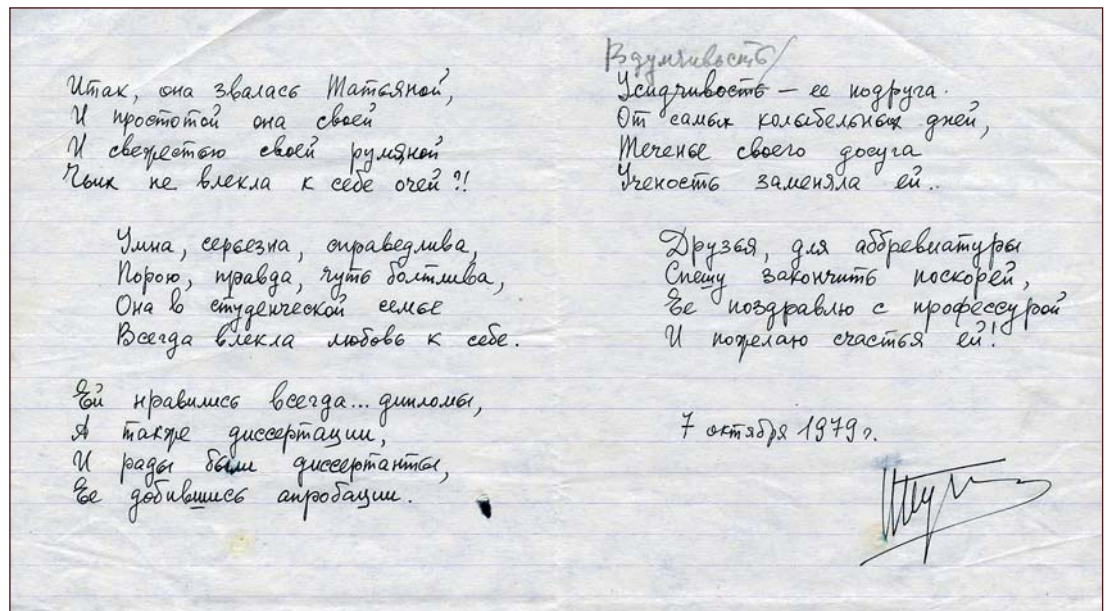 Итак, она звалась Татьяной,
И простотой она своей
И свежестью своей румяной
Чьих не влекла к себе очей?!
Умна, серьезна, справедлива,
Порою, правда, чуть болтлива,
Она в студенческой семье
Всегда влекла любовь к себе.
Ей нравились всегда... дипломы,
А также диссертации,
И рады были диссертанты,
Ее добившись апробации.
Вдумчивость
Усидчивость — ее подруга.
От самых колыбельных дней,
Теченье своего досуга
Ученость заменяла ей..
Друзья, для аббревиатуры
Спешу закончить поскорей,
Ее поздравлю с профессурой
И пожелаю счастья ей!
7 октября 1979 г.